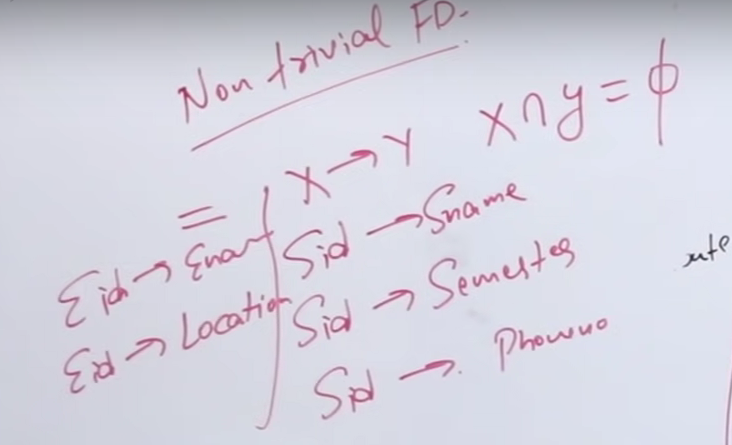 Non trivial FD.
X → Y X ∩ y = ϕ
=
Eid → Enam
Eid → Location
Sid → Sname
Sid → Semester
Sid → Phoneno